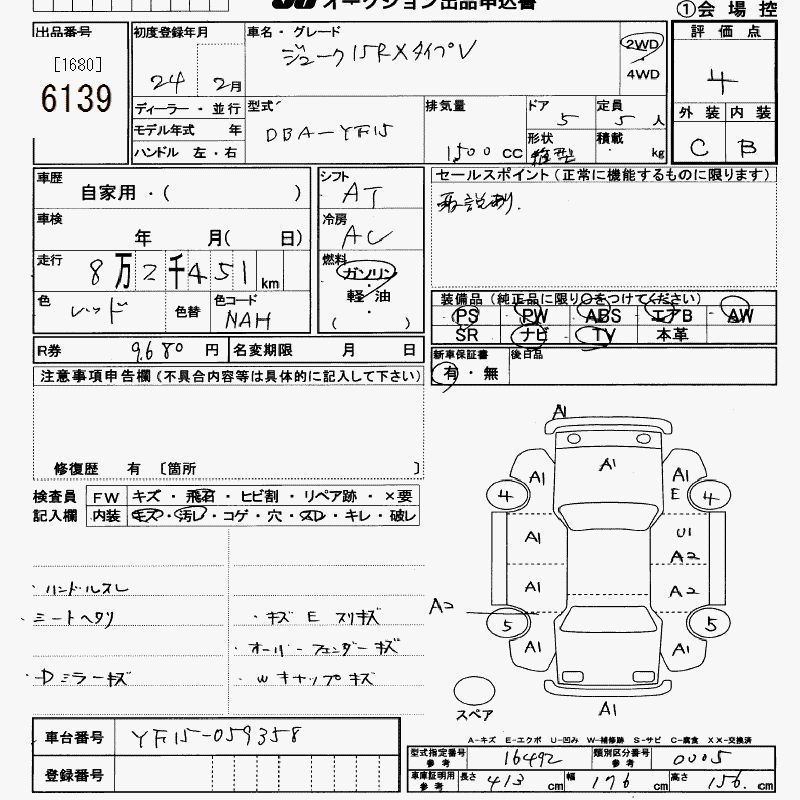 オークション出品申込書
①会場控
出品番号
[1680]
6139
初度登録年月
24 2月
ディーラー・並行
モデル年式 年
ハンドル 左・右
車名・グレード
ジューク15RXタイプV
2WD
4WD
型式
DBA-YF15
排気量
1500 CC
ドア
5
形状
箱型
定員
5 人
積載
kg
評価点
4
外装 内装
C B
車歴
自家用・( )
車検
年 月( 日)
走行
8万2千451km
色
レッド
色替
色コード
NAH
シフト
AT
冷房
AC
燃料
ガソリン
・
軽油
( )
セールスポイント(正常に機能するものに限ります)
取説あり.
装備品(純正品に限り○をつけてください)
PS PW ABS エアB AW
SR ナビ TV 本革
新車保証書
有・無
後日品
R券 9,680 円 名変期限 月 日
注意事項申告欄(不具合内容等は具体的に記入して下さい)
修復歴 有 〔箇所 〕
検査員 FW キズ・飛石・ヒビ割・リペア跡・×要
記入欄 内装 キズ・汚レ・コゲ・穴・スレ・キレ・破レ
・ハンドルスレ
・シートヘタリ
・キズ E スリキズ
・オーバーフェンダーキズ
・Dミラーキズ
・Wキャップキズ
A1
A1
A1
A1
E
4
4
A1
U1
A2
A1
A2
A2
5
5
A1
A1
スペア
A1
A-キズ E-エクボ U-凹み W-補修跡 S-サビ C-腐食 XX-交換済
車台番号 YF15-059358
登録番号
型式指定番号
参考
16492
類別区分番号
参考
0005
車庫証明用
参考
長さ 413 cm 幅 176 cm 高さ 156 cm